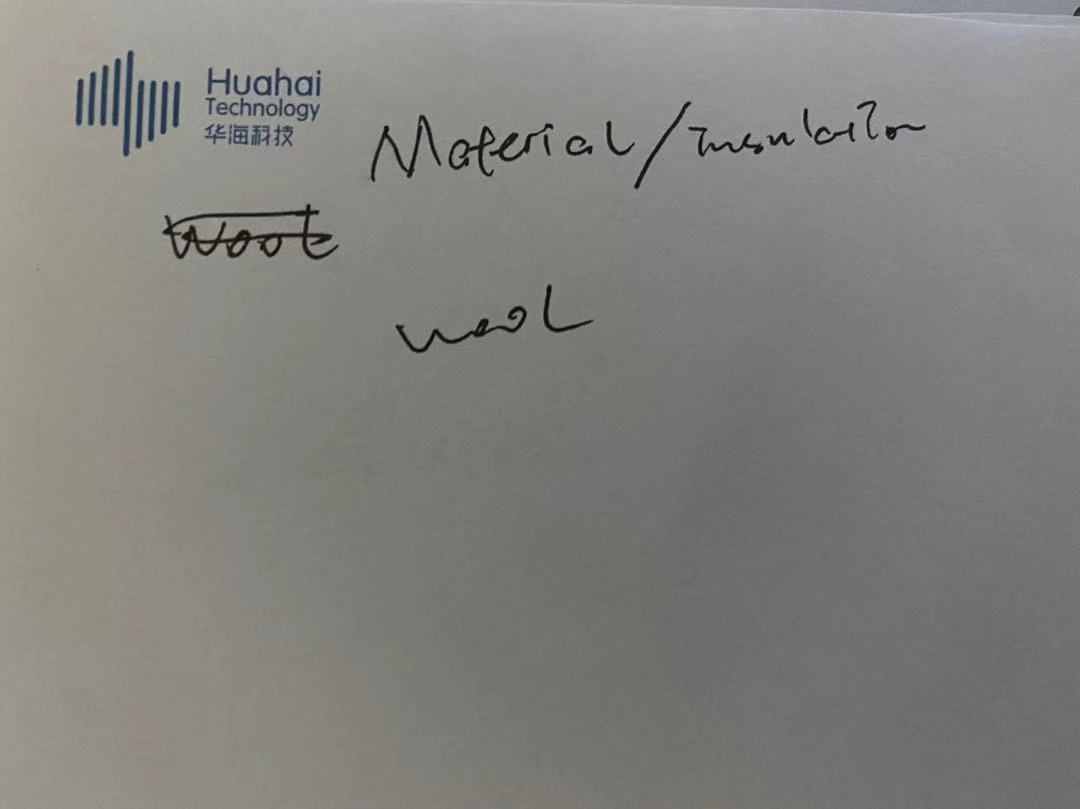 Huahai
Technology
华海科技
Material/Insulation
wool